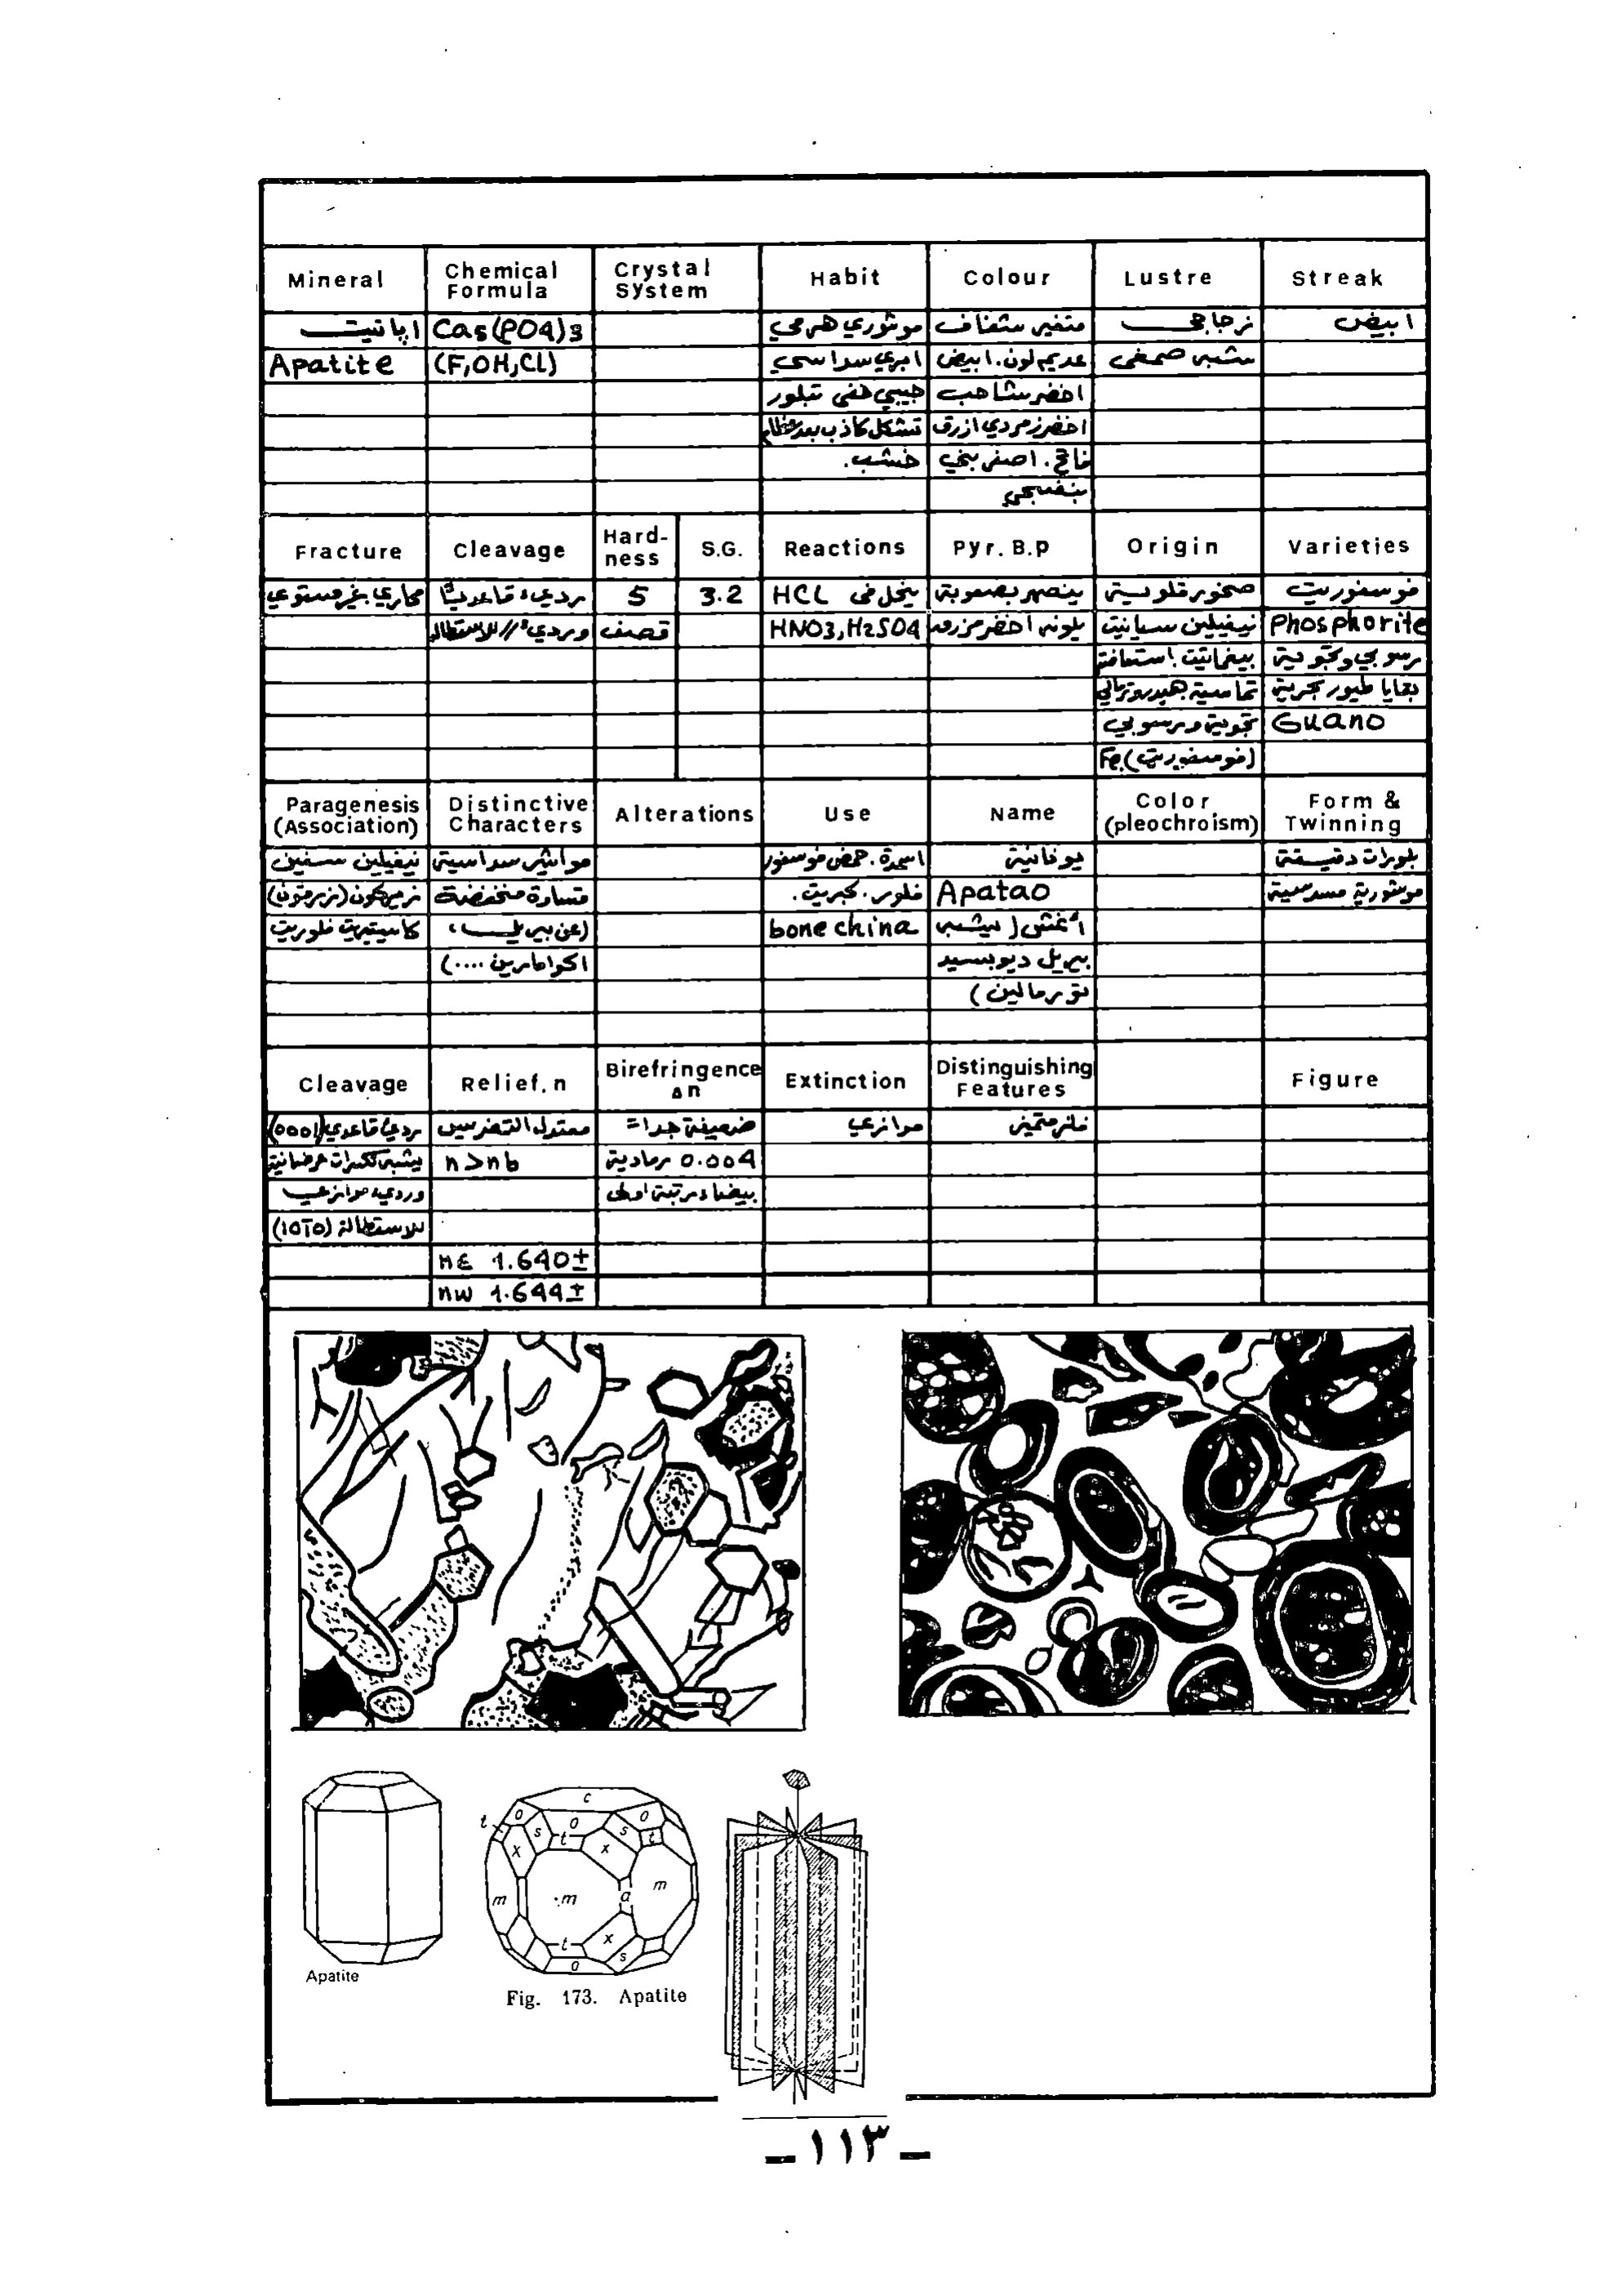 Mineral
Chemical Formula
Crystal System
Habit
Colour
Lustre
Streak
اپاتيت
Ca5(PO4)3
موشوري هرمي
متغير شفاف
زجاجي
ابيض
Apatite
(F,OH,Cl)
ابري سداسي
عديم لون. ابيض
شبه صمغي
حبيبي خفي تبلور
اخضر شاحب
تشكل كاذب بعد عظام
اخضر زمردي ازرق
خشب.
فاتح. اصفر بني
بنفسجي
Fracture
Cleavage
Hard-ness
S.G.
Reactions
Pyr. B.p
Origin
Varieties
محاري بغير مستوي
رديء قاعديّا
5
3.2
HCL ينحل في
ينصهر بصعوبة
صخور قلوية
فوسفوريت
ورديء // للاستطالة
قصف
HNO3, H2SO4
يلونه اخضر مزرقه
نيفيلين سيانيت
Phosphorite
رسوبي وتجوية
بقايا طيور بحرية
تجوية ورسوبي
Guano
(فوسفوريت). Fe
Paragenesis (Association)
Distinctive Characters
Alterations
Use
Name
Color (pleochroism)
Form & Twinning
نيفيلين سفين
مواشير سداسية
اسمدة. حمض فوسفور
يونانية
بلورات دقيقة
زيركون (زرقون)
قساوة منخفضة
فلور. كبريت.
Apatao
موشورية مسدسية
كاسيتيريت فلوريت
(عن بيريل،
bone china
أغش (يشبه
اكوامارين ....)
بيريل ديوبسيد
تورمالين)
Cleavage
Relief, n
Birefringence Δn
Extinction
Distinguishing Features
Figure
رديء قاعدي (0001)
معتدل التضريس
ضعيفة جداً =
موازي
فلز متميز
يشبه تكسرات عرضانية
n > nb
0.004 رمادية
ورديء موازي
بيضاء مرتبة اولى
للاستطالة (10Ī0)
nε 1.640±
nw 1.644±
c
t
o
o
o
s
s
t
t
x
x
m
m
a
m
t
x
s
o
Apatite
Fig. 173. Apatite
– ١١٣ –